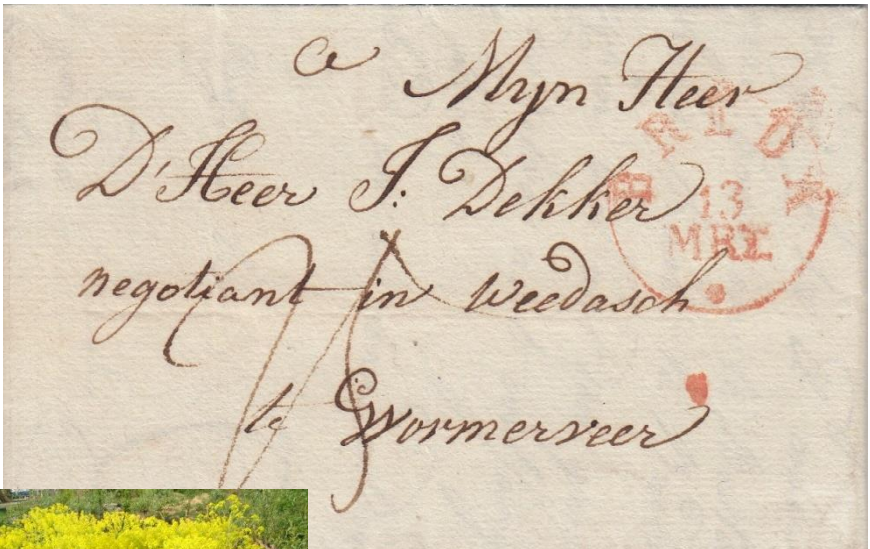 a Myn Heer
D'Heer J: Dekker
negotiant in weedasch
te Wormerveer
BREDA
13
MRT.